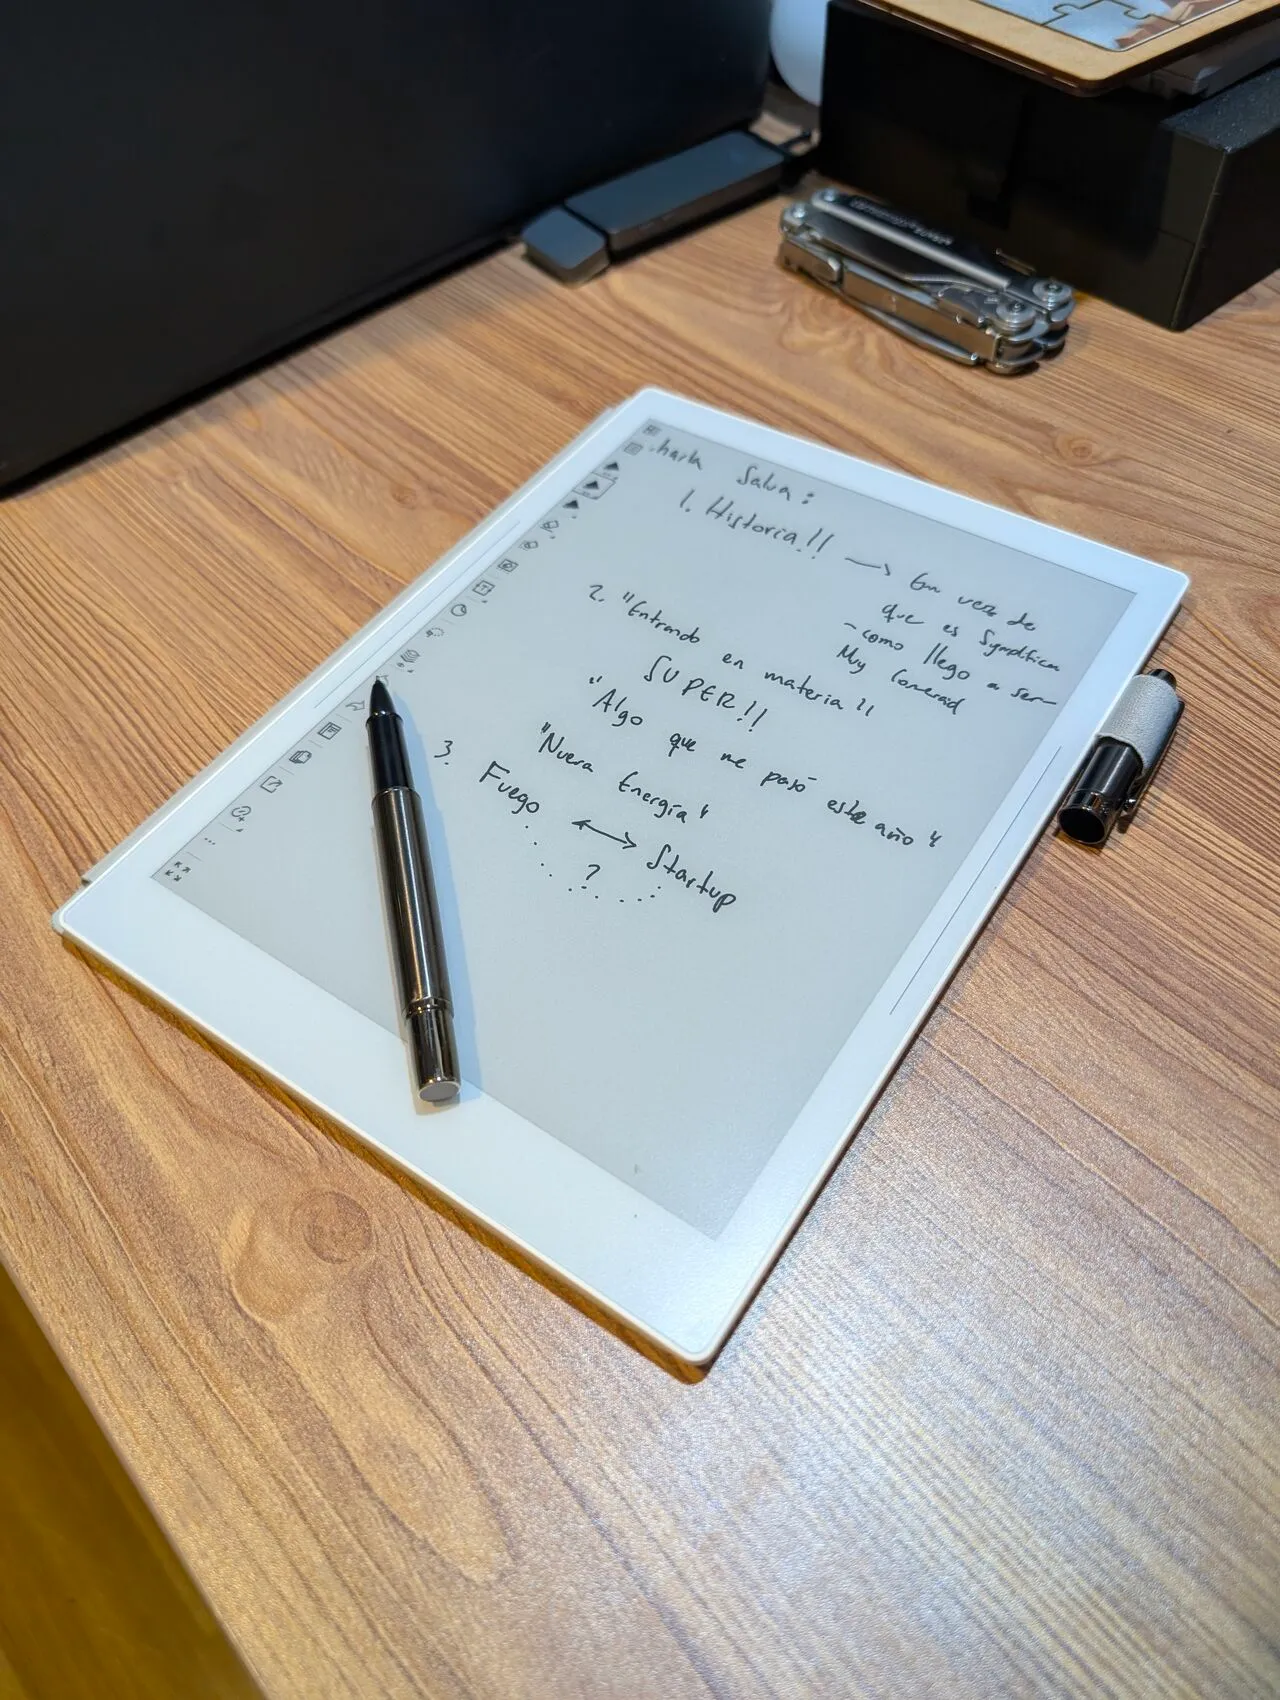 .harla Salva:
1. Historia!! → En vez de
que es Symplifica
- como llego a ser
Muy Comercial
2. "Entrando en materia"
SUPER!!
"Algo que me pasó este año"
"Nueva Energía"
3. Fuego ↔ Startup
?